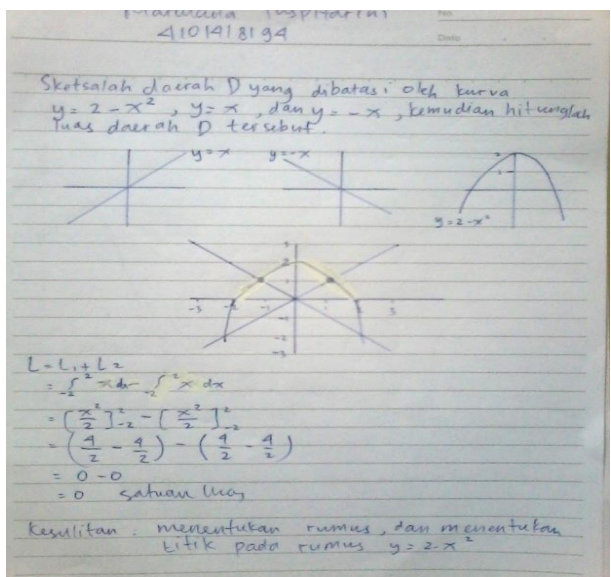 4101418194
No.
Date
Sketsalah daerah D yang dibatasi oleh kurva
y = 2 - x², y = x, dan y = -x, kemudian hitunglah
luas daerah D tersebut.
y = x
y = -x
2
1
y = 2 - x²
3
2
1
-3 -2 -1 1 2 3
-1
-2
-3
L = L₁ + L₂
= ∫₋₂² x dx - ∫₋₂² x dx
= [x²/2]₋₂² - [x²/2]₋₂²
= (4/2 - 4/2) - (4/2 - 4/2)
= 0 - 0
= 0 satuan luas
Kesulitan : menentukan rumus, dan menentukan
titik pada rumus y = 2 - x²